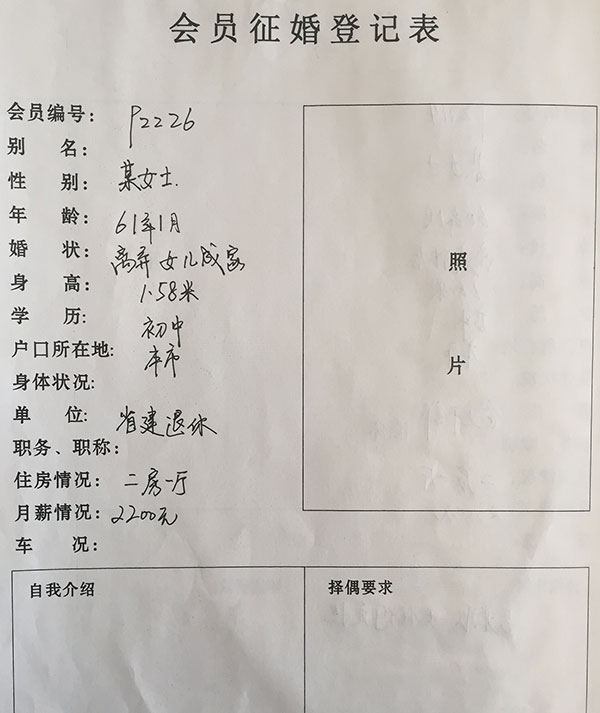 会员征婚登记表
会员编号: P2226
别 名:
性 别: 某女士.
年 龄: 61年1月
婚 状: 离弃 女儿成家
身 高: 1.58米
学 历: 初中
户口所在地: 本市
身体状况:
单 位: 省建退休
职务、职称:
住房情况: 二房一厅
月薪情况: 2200元
车 况:
照
片
自我介绍
择偶要求